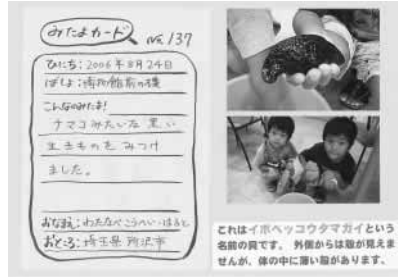 みたまカード
No. 137
ひにち：2006年8月24日
ばしょ：博物館前の磯
こんなのみたよ!
ナマコみたいな黒い
生きものをみつけ
ました。
おなまえ：わたなべ
おところ：埼玉県 所沢市
これはイボベッコウタマガイという
名前の貝です。 外側からは殻が見えま
せんが、体の中に薄い殻があります。